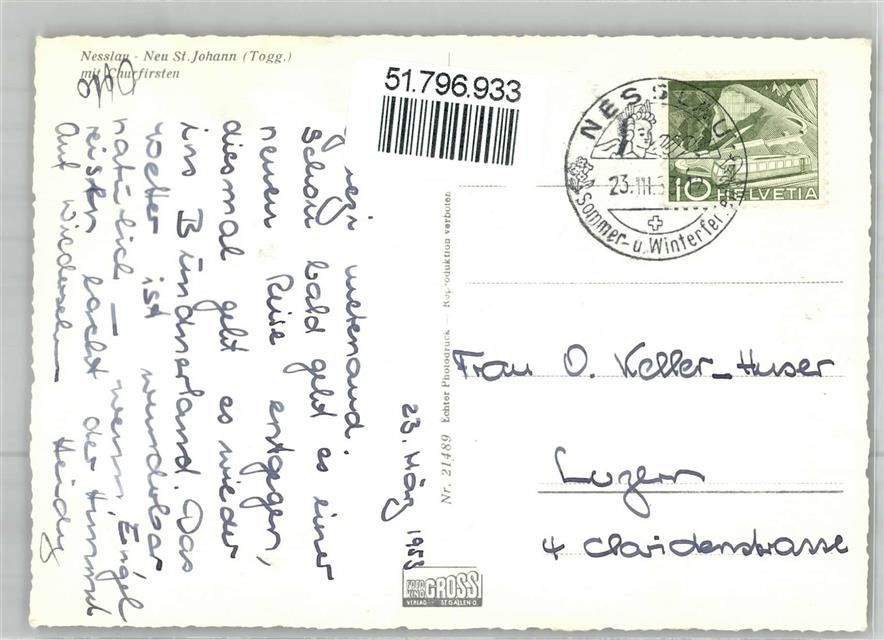 Nesslau - Neu St. Johann (Togg.)
mit Churfirsten
51.796.933
NESSLAU
23.III.5
Sommer- u. Winterfer
10 HELVETIA
23. März 1953
metenand.
Schon bald geht es einer
neuen Reise entgegen,
diesmal geht es wieder
ins Bündnerland. Das
Wetter ist wunderbar
natürlich – wenn Engel
reisen lacht der Himmel
Auf Wiedersehn Heidy
Nr. 21489 Echter Photodruck – Reproduktion verboten
Frau O. Keller-Huser
Luzern
4 Claridenstrasse
FOTO KINO GROSS
VERLAG ST. GALLEN O.